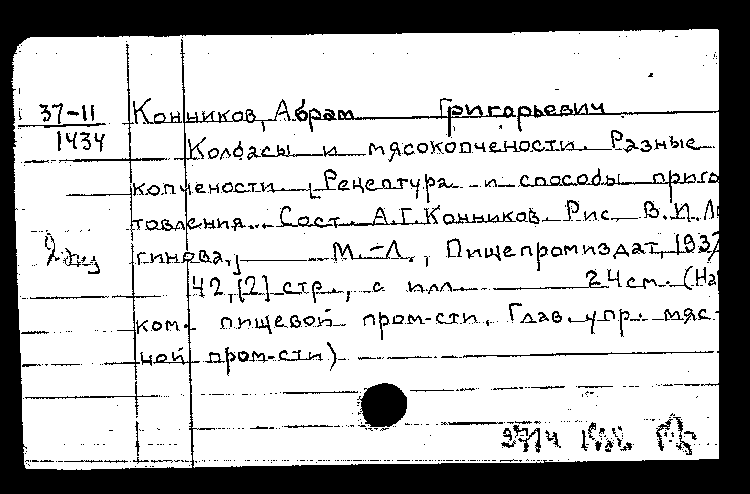 37-11
1434
Конников, Абрам Григорьевич
Колбасы и мясокопчености. Разные
копчености. [Рецептура и способы приго
товления. Сост. А.Г.Конников. Рис. В.И.Ло
гинова.] М.-Л., Пищепромиздат, 1937
42,[2] стр., с илл. 24см. (На
ком. пищевой пром-сти. Глав. упр. мяс-
ной пром-сти)
2 экз
2714